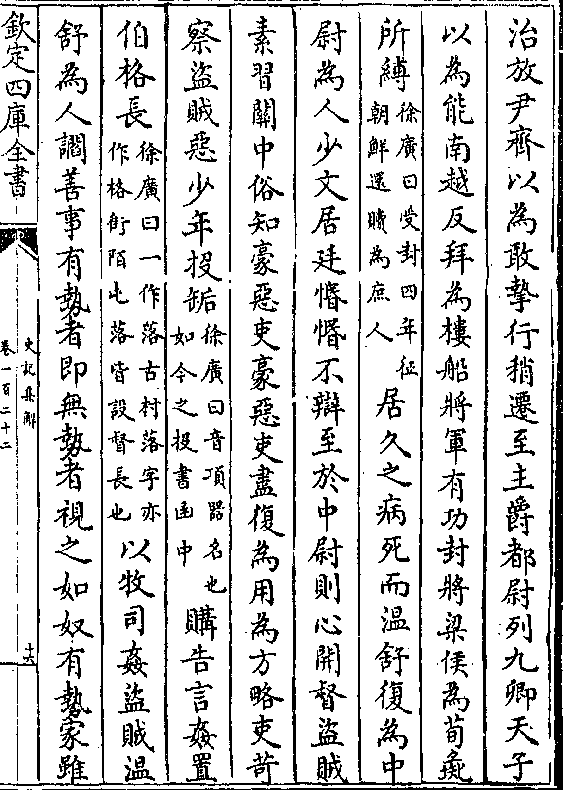 治放尹齊以為敢擊行稍遷至主爵都尉列九卿天子
以為能南越反拜為樓船將軍有功封將梁侯為荀彘
所縛徐廣曰受封四年征朝鮮還贖為庶人居久之病死而温舒復為中
尉為人少文居廷惛惛不辯至於中尉則心開督盜賊
素習關中俗知豪惡吏豪惡吏盡復為用為方略吏苛
察盜賊惡少年投缿徐廣曰音項器名也如今之投書函中購告言姦置
伯格長徐廣曰一作落古村落字亦作格街陌屯落皆設督長也以牧司姦盜賊温
舒為人讇善事有埶者即無埶者視之如奴有埶家雖
欽定四庫全書
史記集解
卷一百二十二
十六